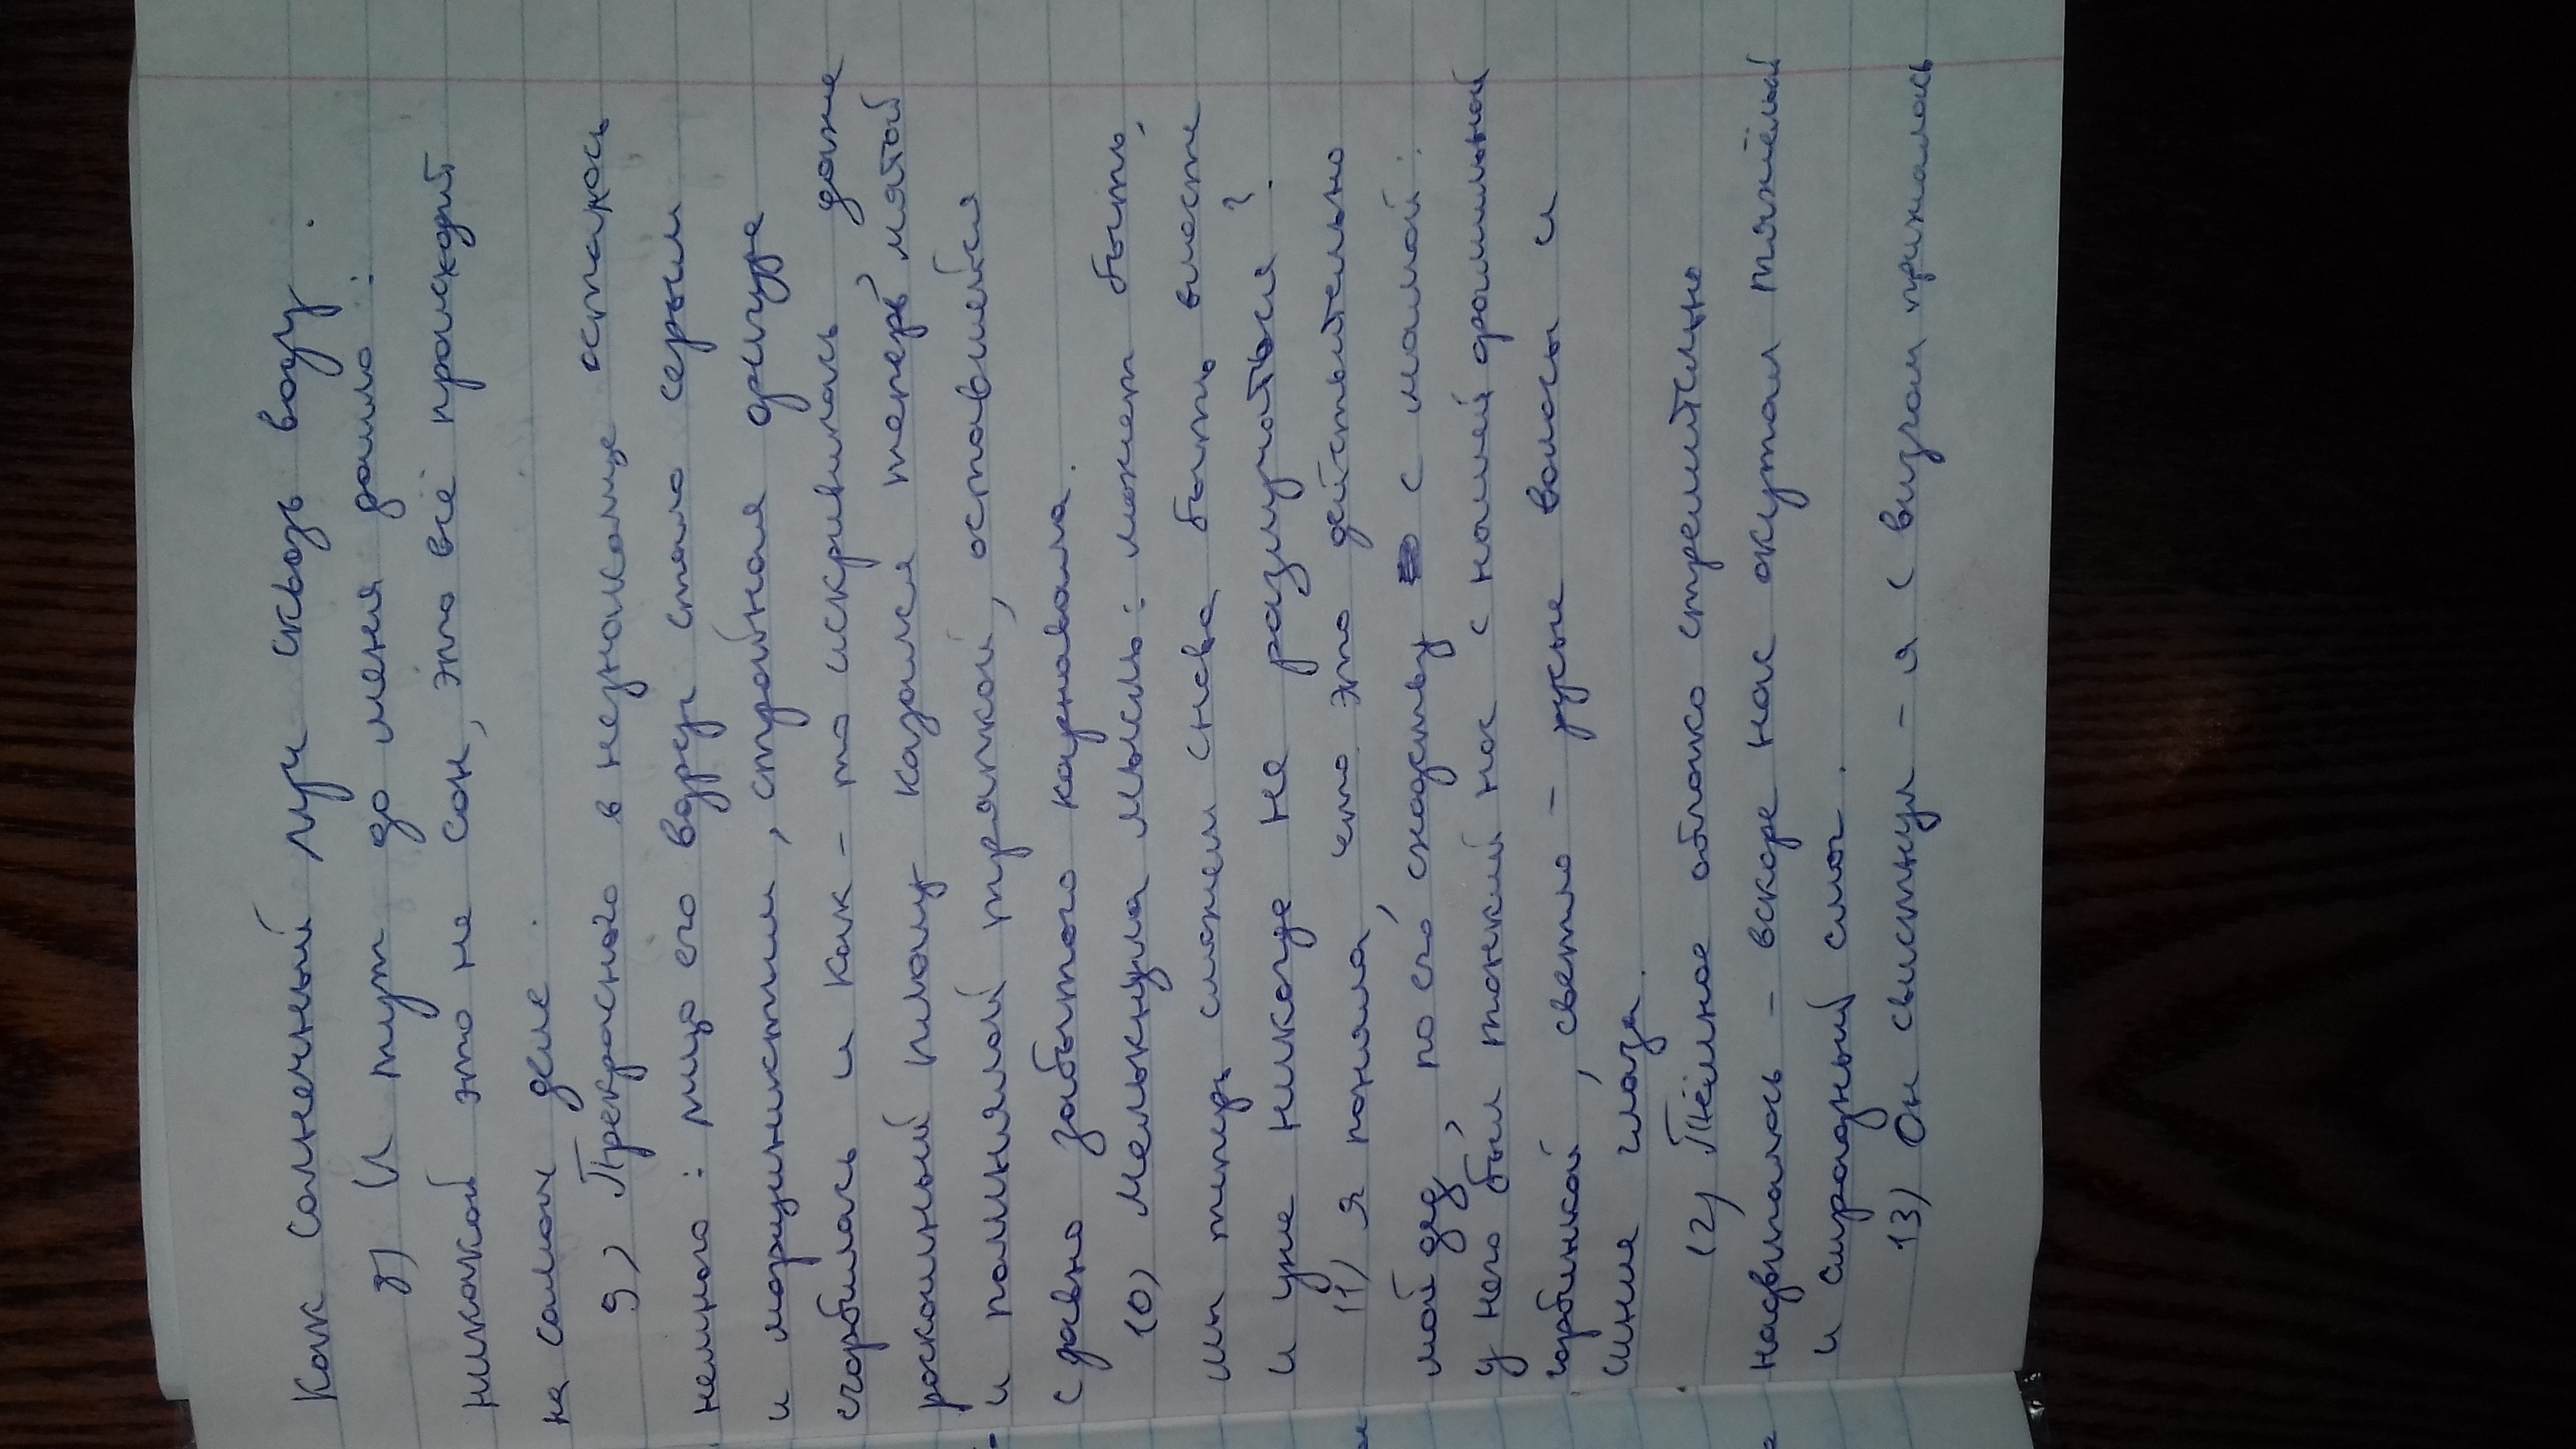 как солнечный луч сквозь воду.
8) И тут до меня дошло:
никакой это не сон, это всё происходит
на самом деле.
9) Прекрасного в незнакомце осталось
немного: лицо его вдруг стало серым
и морщинистым, стройная фигура
сгорбилась и как-то искривилась даже
роскошный плащ казался теперь мятой
и полинялой тряпкой, оставшейся
с давно забытого карнавала.
10) Мелькнула мысль: может быть,
мы теперь сможем снова быть вместе
и уже никогда не разлучаться?
11) Я поняла, что это действительно
мой дед, по его сходству с мамой:
у него был тонкий нос с нашей фамильной
горбинкой, светло-русые волосы и
синие глаза.
12) Тёмное облако стремительно
надвигалось - вскоре нас окутал тяжёлый
и смрадный смог.
13) Он свистнул - я с визгом прижалась